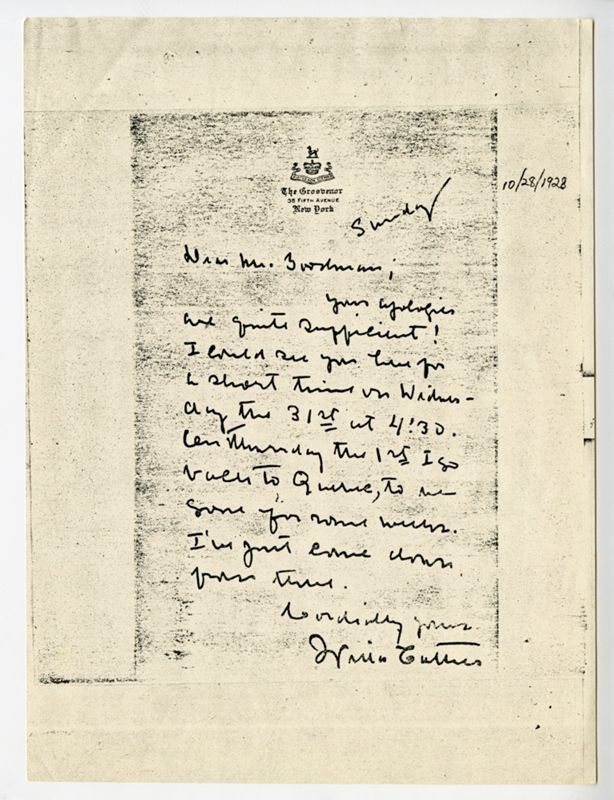 The Grosvenor
35 Fifth Avenue
New York
10/28/1928
Sunday
Dear Mr. Goodman;
Your apologies
are quite sufficient!
I could see you here for
a short time on Wednes-
day the 31st at 4:30.
On Thursday the 1st I go
back to Quebec, to be
gone for some weeks.
I've just come down
from there.
Cordially yours
Willa Cather